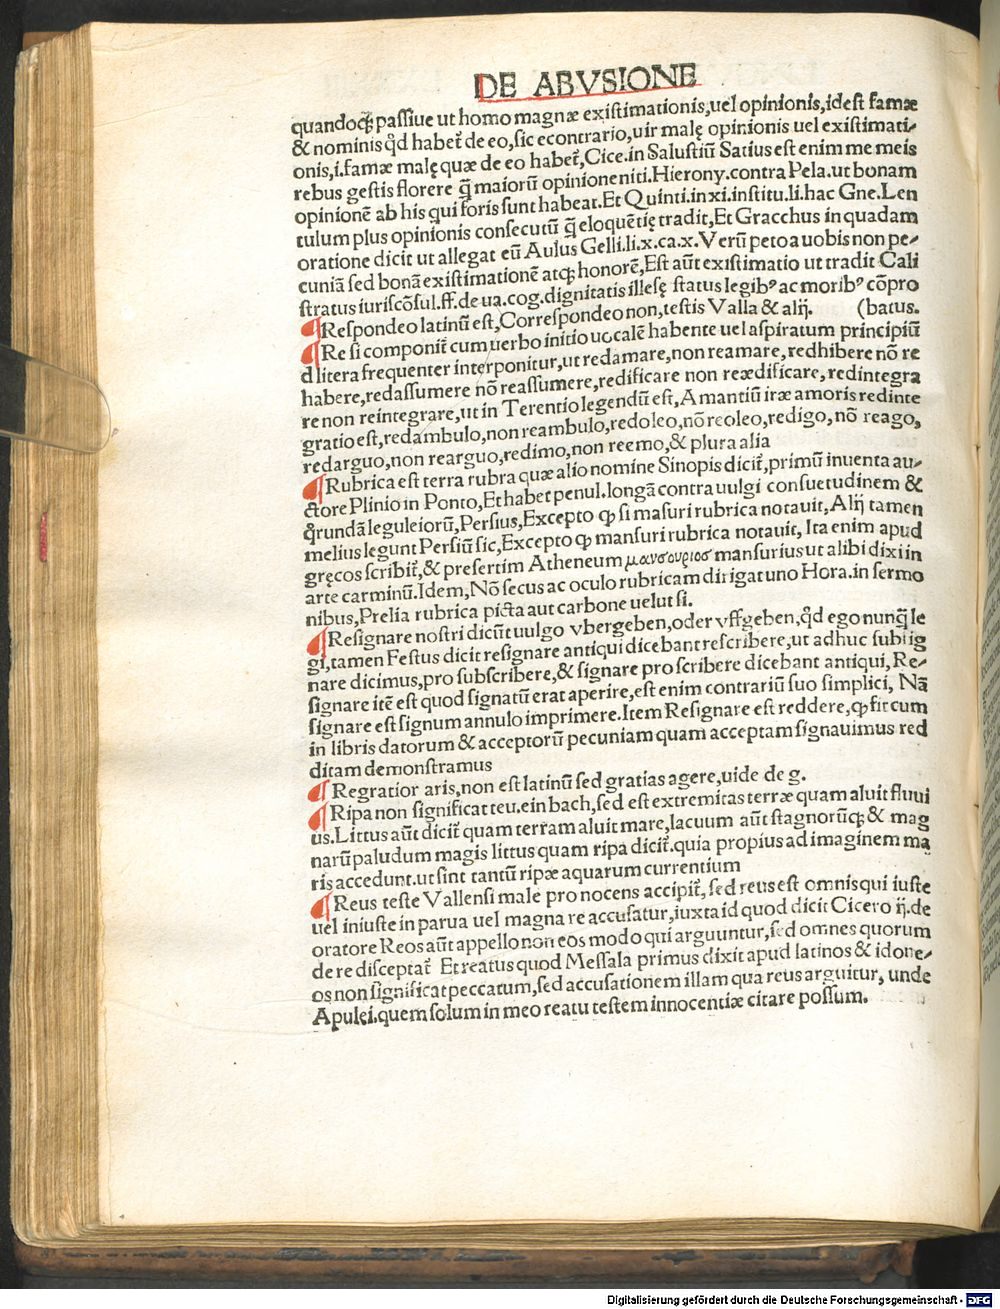 DE ABVSIONE
quandoqꝫ passiue ut homo magnæ existimationis,uel opinionis,idest famæ
& nominis qd̄ habet̃ de eo,sic econtrario,uir malę opinionis uel existimati-
onis,i.famæ malę quæ de eo habet̃,Cice.in Salustiū Satius est enim me meis
rebus gestis florere q̄ maiorū opinione niti.Hierony.contra Pela.ut bonam
opinionē ab his qui foris sunt habeat.Et Quinti.in xi.institu.li.hac Gne.Len
tulum plus opinionis consecutū q̄ eloquētię tradit,Et Gracchus in quadam
oratione dicit ut allegat eū Aulus Gelli.li.x.ca.x.Verū peto a uobis non pe-
cuniā sed bonā existimationē atqꝫ honorē,Est aūt existimatio ut tradit Cali
stratus iuriscōsul.ff.de ua.cog.dignitatis illesę status legibꝰ ac moribꝰ cōpro
¶Respondeo latinū est,Correspondeo non,testis Valla & alij. (batus.
¶Re si componit̃ cum uerbo initio uocalē habente uel aspiratum principiū
d litera frequenter interponitur,ut redamare,non reamare,redhibere nō re
habere,redassumere nō reassumere,redificare non reædificare,redintegra
re non reintegrare,ut in Terentio legendū est,Amantiū iræ amoris redinte
gratio est,redambulo,non reambulo,redoleo,nō reoleo,redigo,nō reago,
redarguo,non rearguo,redimo,non reemo,& plura alia
¶Rubrica est terra rubra quæ alio nomine Sinopis dicit̃,primū inuenta au-
ctore Plinio in Ponto,Et habet penul.longā contra uulgi consuetudinem &
qrundā leguleiorū,Persius,Excepto ꝙ si masuri rubrica notauit,Alij tamen
melius legunt Persiū sic,Excepto ꝙ mansuri rubrica notauit, Ita enim apud
gręcos scribit̃,& presertim Atheneum μανσουριοσ mansurius ut alibi dixi in
arte carminū.Idem,Nō secus ac oculo rubricam dirigat uno Hora.in sermo
nibus,Prelia rubrica picta aut carbone uelut si.
¶Resignare nostri dicūt uulgo vbergeben,oder vffgeben,qd̄ ego nunq̄ le
gi,tamen Festus dicit resignare antiqui dicebant rescribere,ut adhuc subsig
nare dicimus,pro subscribere,& signare pro scribere dicebant antiqui, Re-
signare itē est quod signatū erat aperire,est enim contrariū suo simplici, Nā
signare est signum annulo imprimere.Item Resignare est reddere,ꝙ fit cum
in libris datorum & acceptorū pecuniam quam acceptam signauimus red
ditam demonstramus
¶Regratior aris,non est latinū sed gratias agere,uide de g.
¶Ripa non significat teu.ein bach,sed est extremitas terræ quam aluit fluui
us.Littus aūt dicit̃ quam terram aluit mare,lacuum aūt stagnorūqꝫ & mag
narū paludum magis littus quam ripa dicit̃.quia propius ad imaginem ma
ris accedunt.ut sint tantū ripæ aquarum currentium
¶Reus teste Vallensi male pro nocens accipit̃, sed reus est omnis qui iuste
uel iniuste in parua uel magna re accusatur,iuxta id quod dicit Cicero ij.de
oratore Reos aūt appello non eos modo qui arguuntur,sed omnes quorum
de re disceptat̃ Et reatus quod Messala primus dixit apud latinos & idone-
os non significat peccatum,sed accusationem illam qua reus arguitur, unde
Apulei.quem solum in meo reatu testem innocentiæ citare possum.
Digitalisierung gefördert durch die Deutsche Forschungsgemeinschaft - DFG